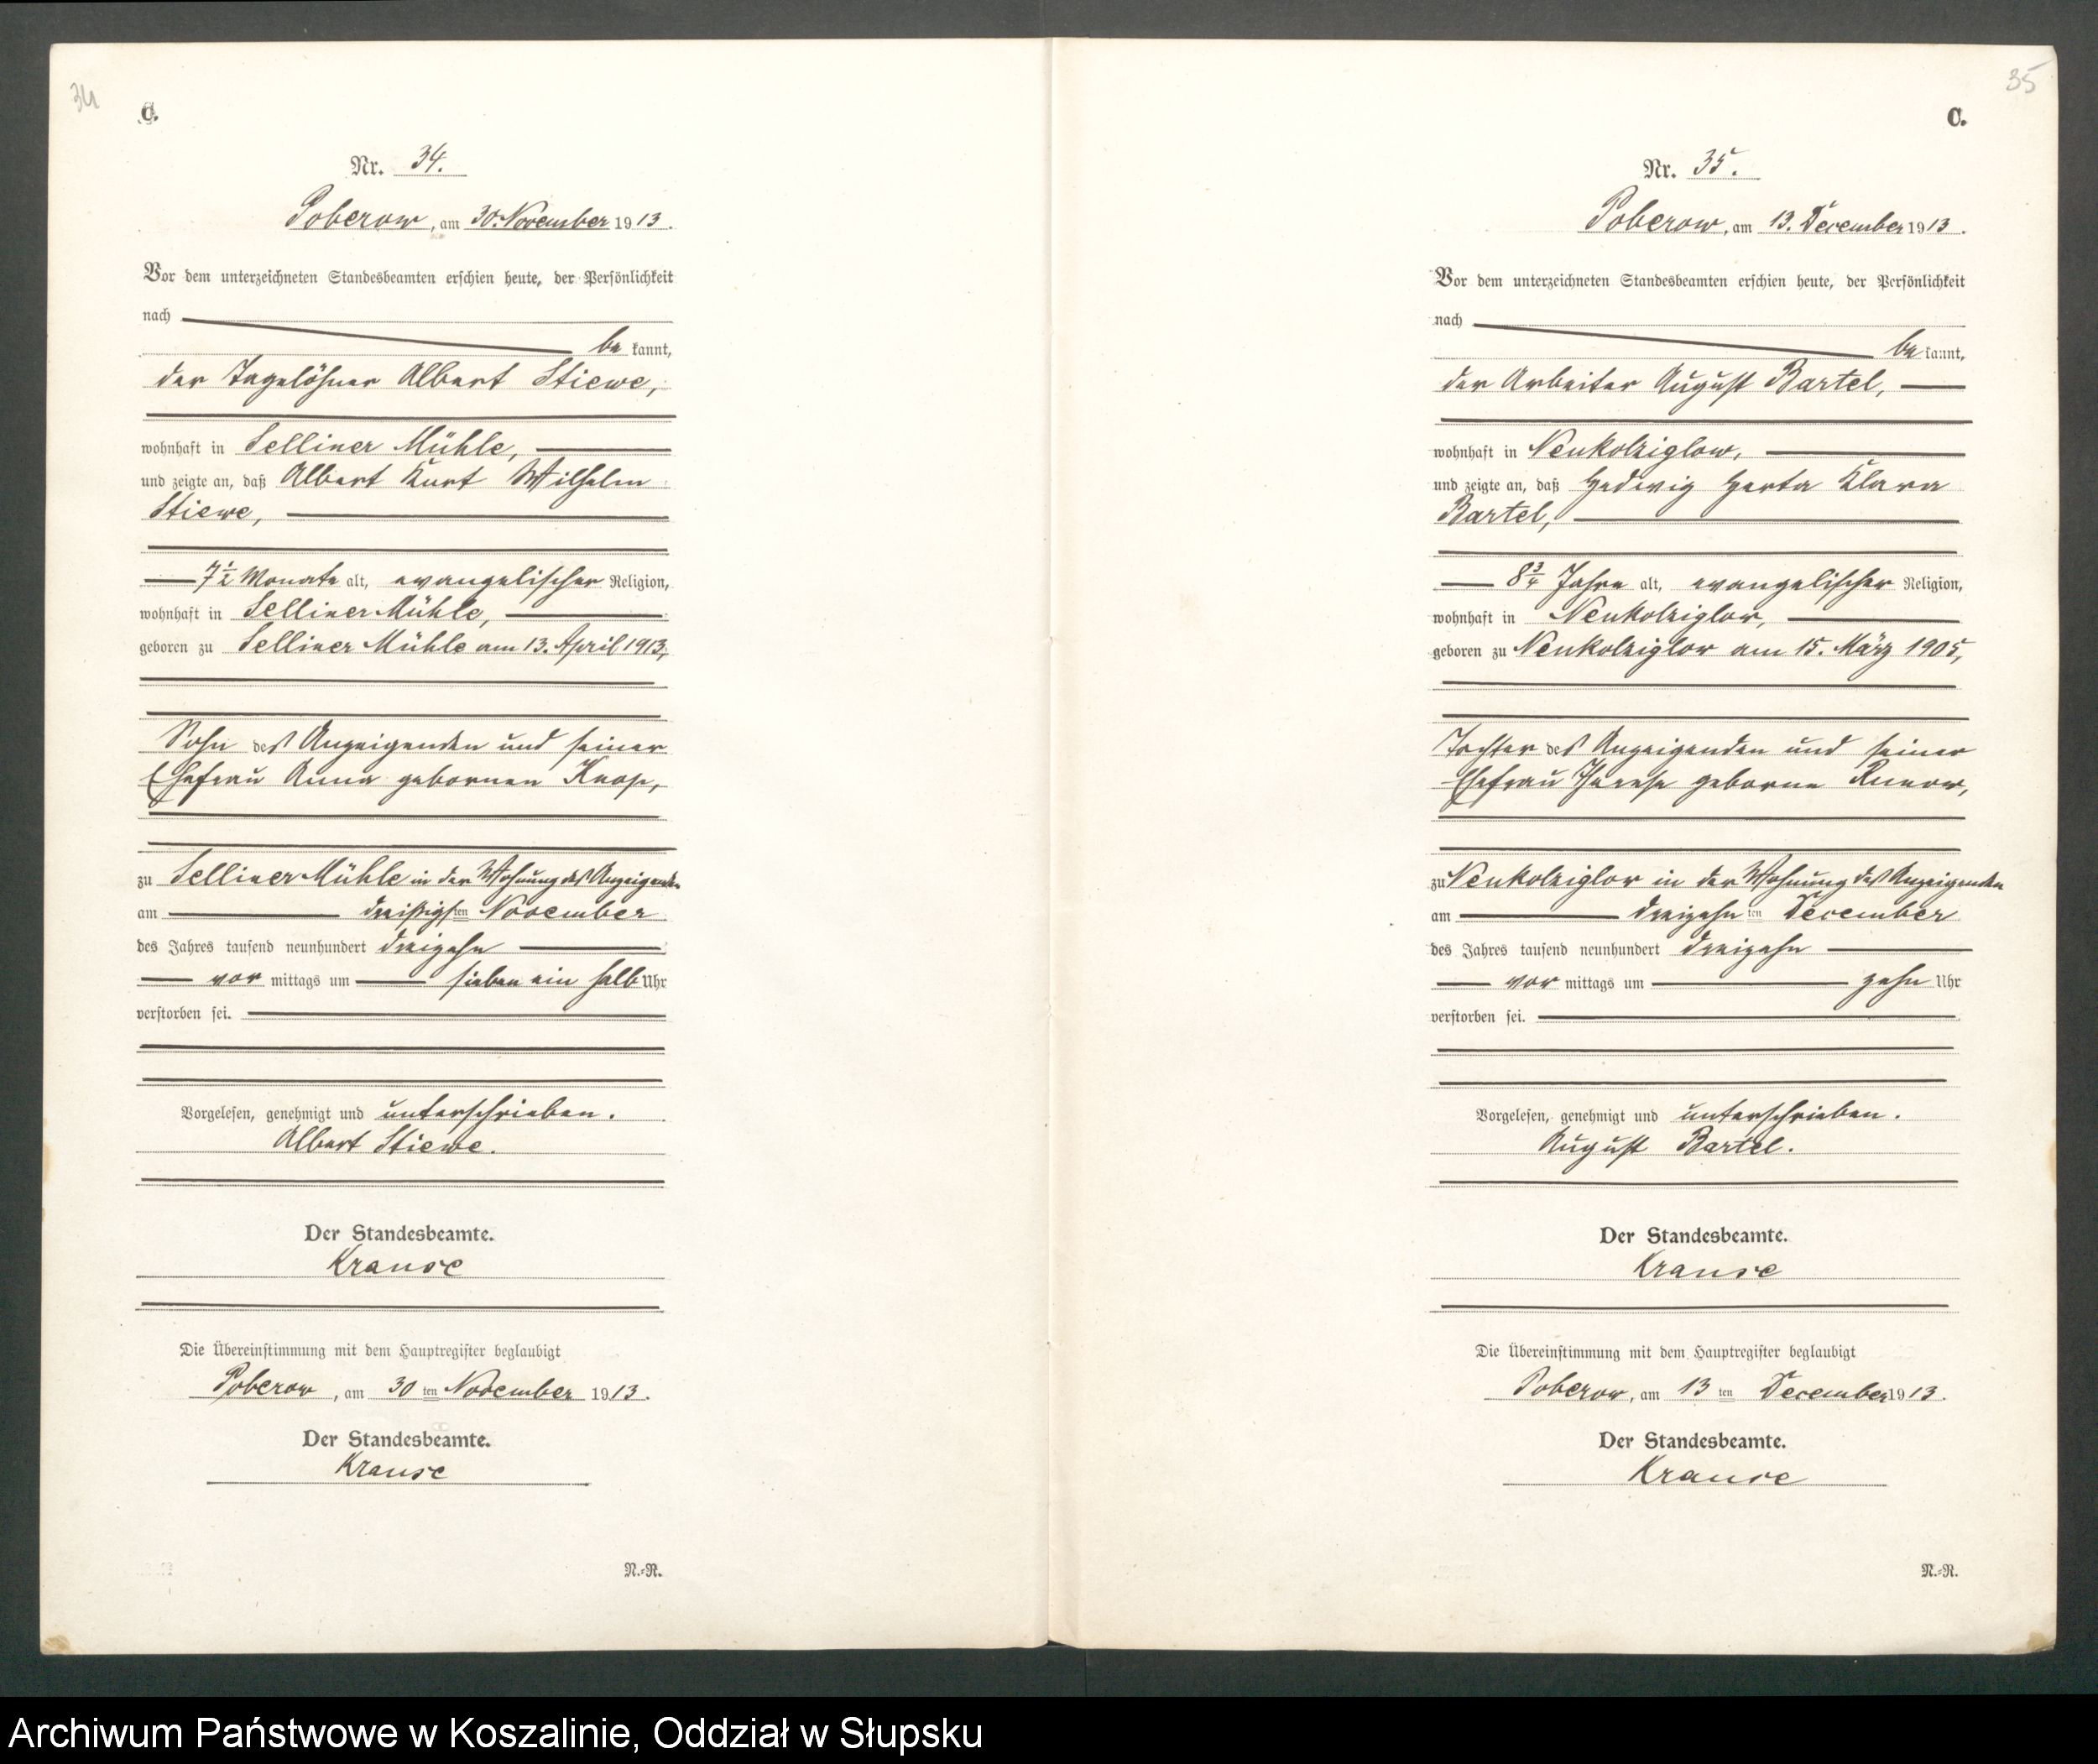 34
C.
Nr. 34.
Poberow, am 30. November 1913.
Vor dem unterzeichneten Standesbeamten erschien heute, der Persönlichkeit
nach
be kannt,
der Tagelöhner Albert Stiewe,
wohnhaft in Selliner Mühle,
und zeigte an, daß Albert Kurt Wilhelm
Stiewe,
7 1/2 Monate alt, evangelischer Religion,
wohnhaft in Selliner Mühle,
geboren zu Selliner Mühle am 13. April 1913,
Sohn des Anzeigenden und seiner
Ehefrau Anna gebornen Knop,
zu Selliner Mühle in der Wohnung des Anzeigenden
am dreißigsten November
des Jahres tausend neunhundert dreizehn
vor mittags um sieben ein halb Uhr
verstorben sei.
Vorgelesen, genehmigt und unterschrieben.
Albert Stiewe.
Der Standesbeamte.
Krause
Die Übereinstimmung mit dem Hauptregister beglaubigt
Poberow, am 30 ten November 1913.
Der Standesbeamte.
Krause
N.-R.
35
C.
Nr. 35.
Poberow, am 13. December 1913.
Vor dem unterzeichneten Standesbeamten erschien heute, der Persönlichkeit
nach
be kannt,
der Arbeiter August Bartel,
wohnhaft in Neukolziglow,
und zeigte an, daß Hedwig Herta Klara
Bartel,
8 3/4 Jahre alt, evangelischer Religion,
wohnhaft in Neukolziglow,
geboren zu Neukolziglow am 15. März 1905,
Tochter des Anzeigenden und seiner
Ehefrau Therese geborne
zu Neukolziglow in der Wohnung des Anzeigenden
am dreizehn ten December
des Jahres tausend neunhundert dreizehn
vor mittags um zehn Uhr
verstorben sei.
Vorgelesen, genehmigt und unterschrieben.
August Bartel.
Der Standesbeamte.
Krause
Die Übereinstimmung mit dem Hauptregister beglaubigt
Poberow, am 13 ten December 1913.
Der Standesbeamte.
Krause
N.-R.
Archiwum Państwowe w Koszalinie, Oddział w Słupsku